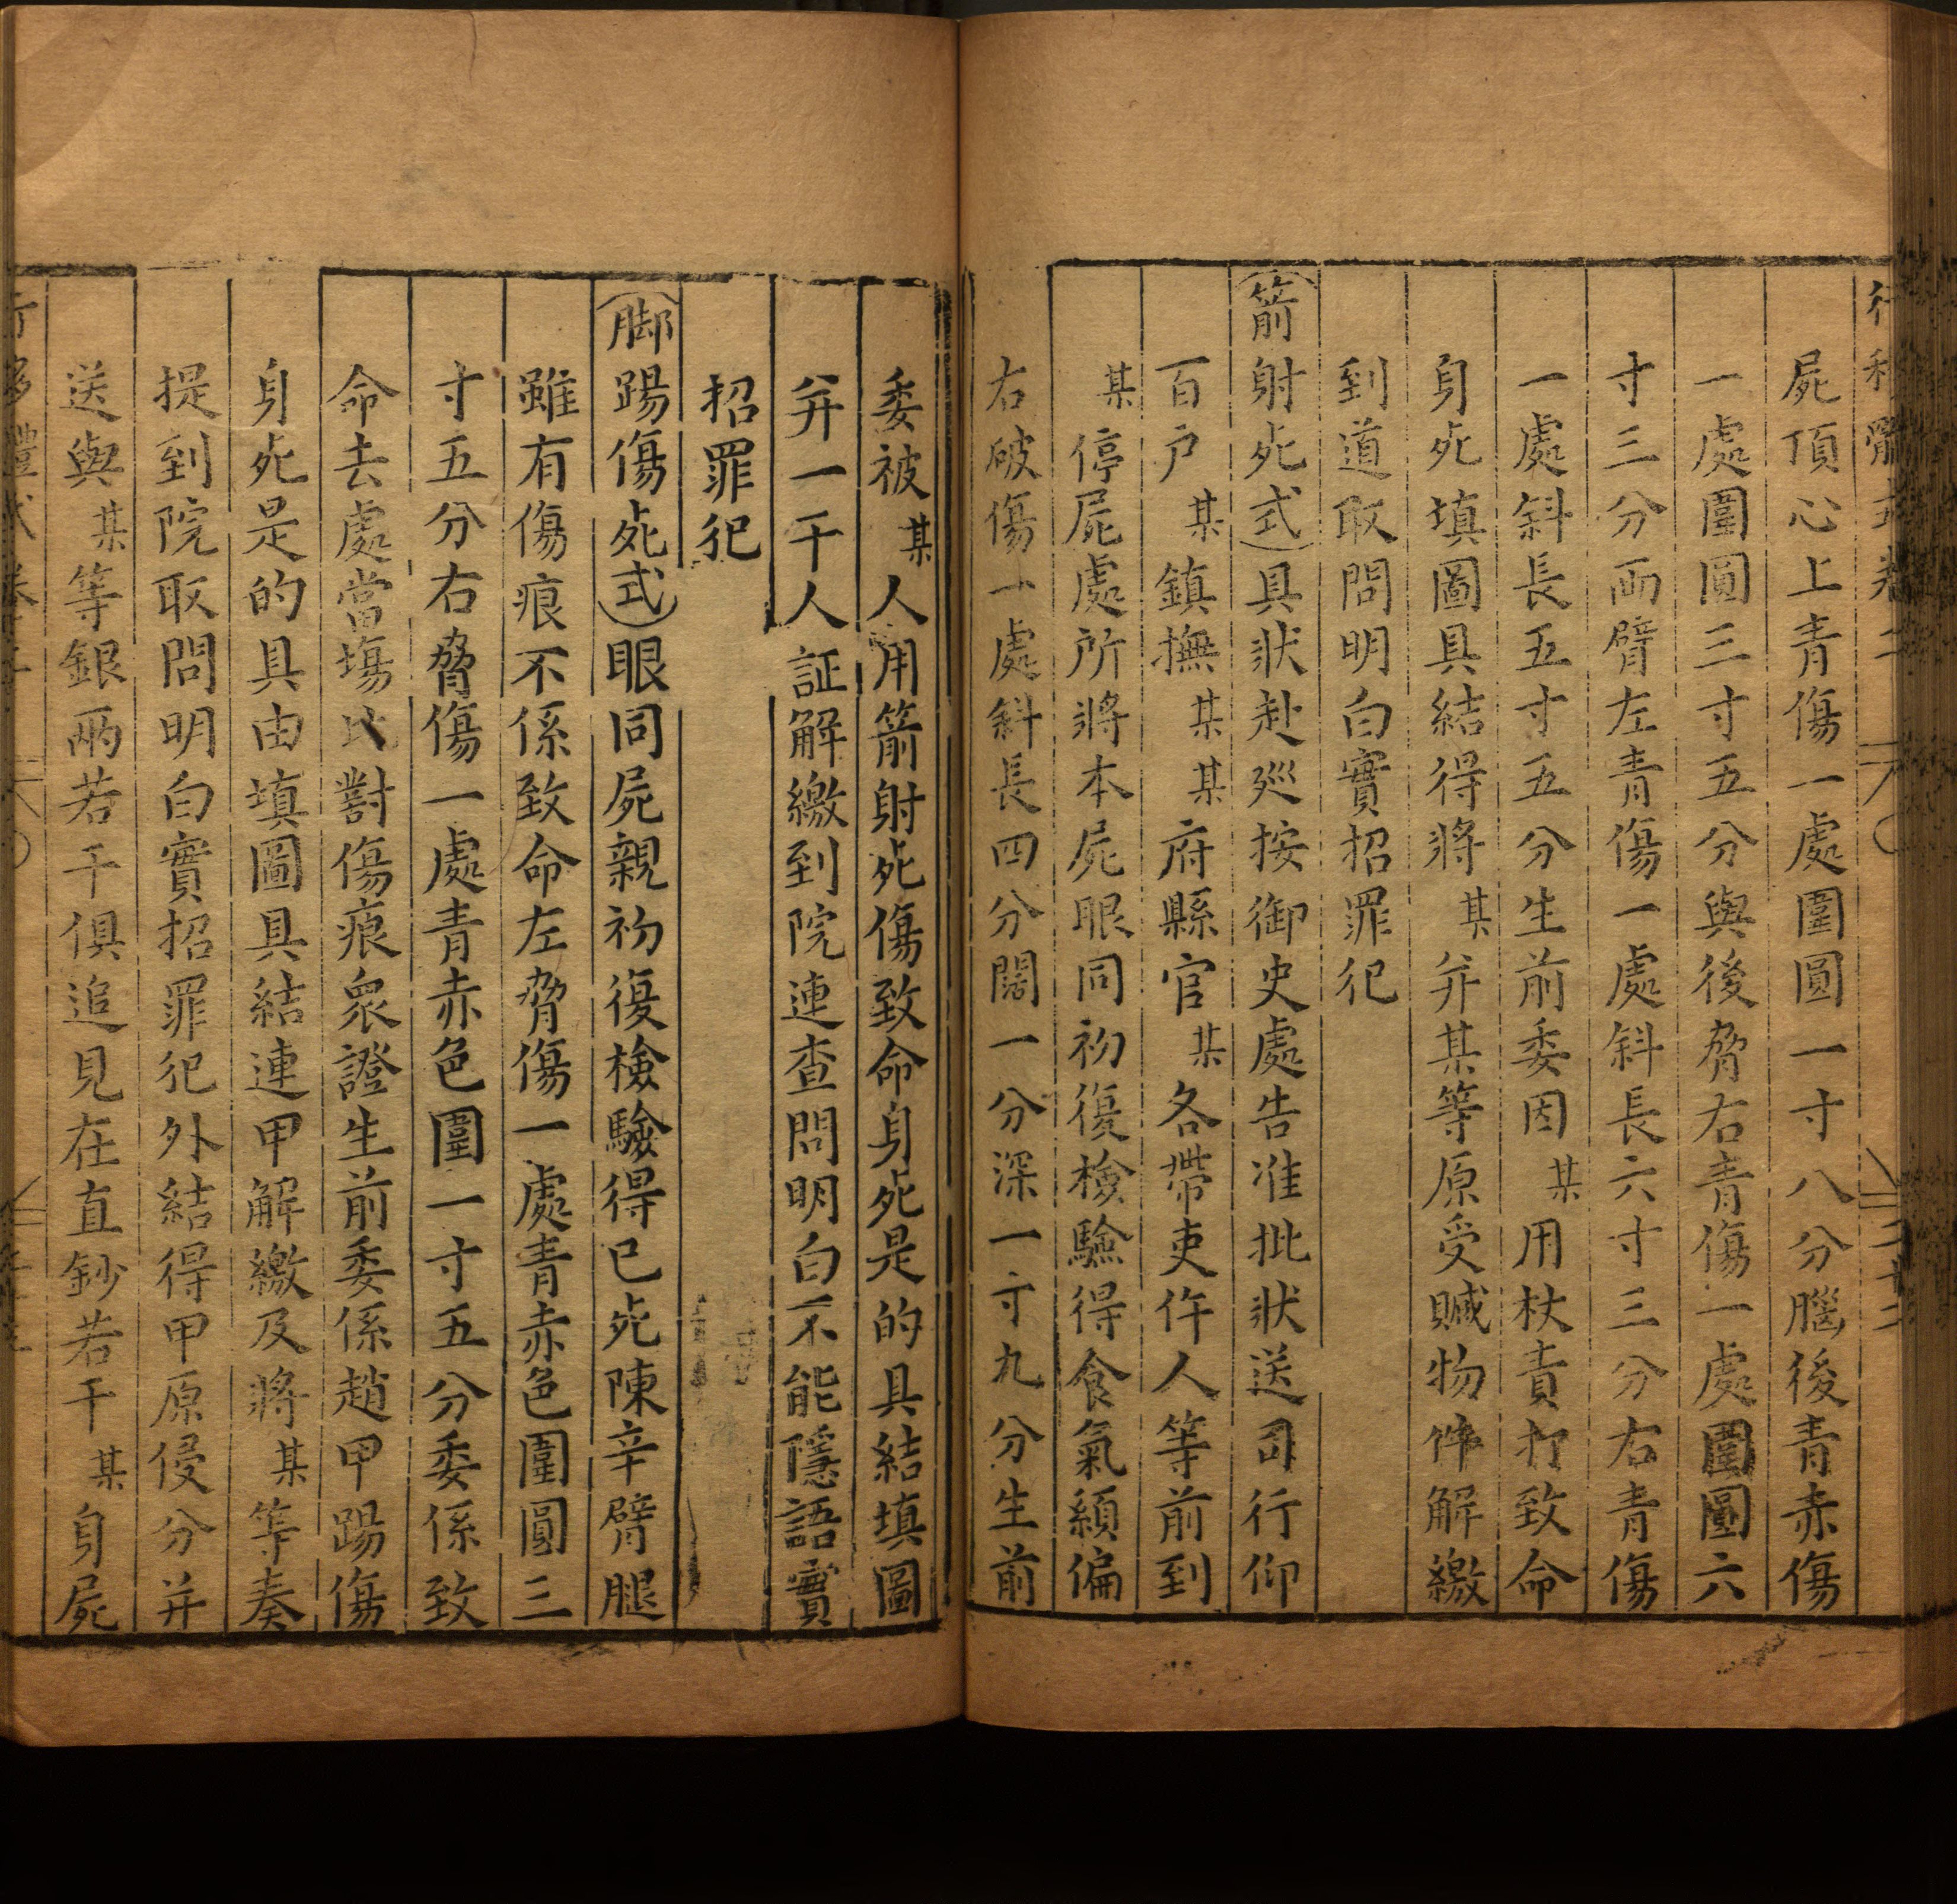 行移體式卷二
屍頂心上青傷一處圍圓一寸八分腦後青赤傷
一處圍圓三寸五分與後脅右青傷一處圍圓六
寸三分兩臂左青傷一處斜長六寸三分右青傷
一處斜長五寸五分生前委因某用杖責打致命
身死填圖具結得將某并某等原受贓物件解繳
到道取問明白實招罪犯
箭射死式具狀赴廵按御史處告准批狀送司行仰
百戶某鎮撫某某府縣官某各帶吏仵人等前到
某停屍處所將本屍眼同初復檢驗得食氣顙偏
右破傷一處斜長四分闊一分深一寸九分生前
委被某人用箭射死傷致命身死是的具結填圖
并一干人証解繳到院連查問明白不能隱語實
招罪犯
脚踢傷死式眼同屍親初復檢驗得已死陳辛臂腿
雖有傷痕不係致命左脅傷一處青赤色圍圓三
寸五分右脅傷一處青赤色圍一寸五分委係致
命去處當塲比對傷痕衆證生前委係趙甲踢傷
身死是的具由填圖具結連甲解繳及將某等奏
提到院取問明白實招罪犯外結得甲原侵分并
送與某等銀兩若干俱追見在直鈔若干某身屍